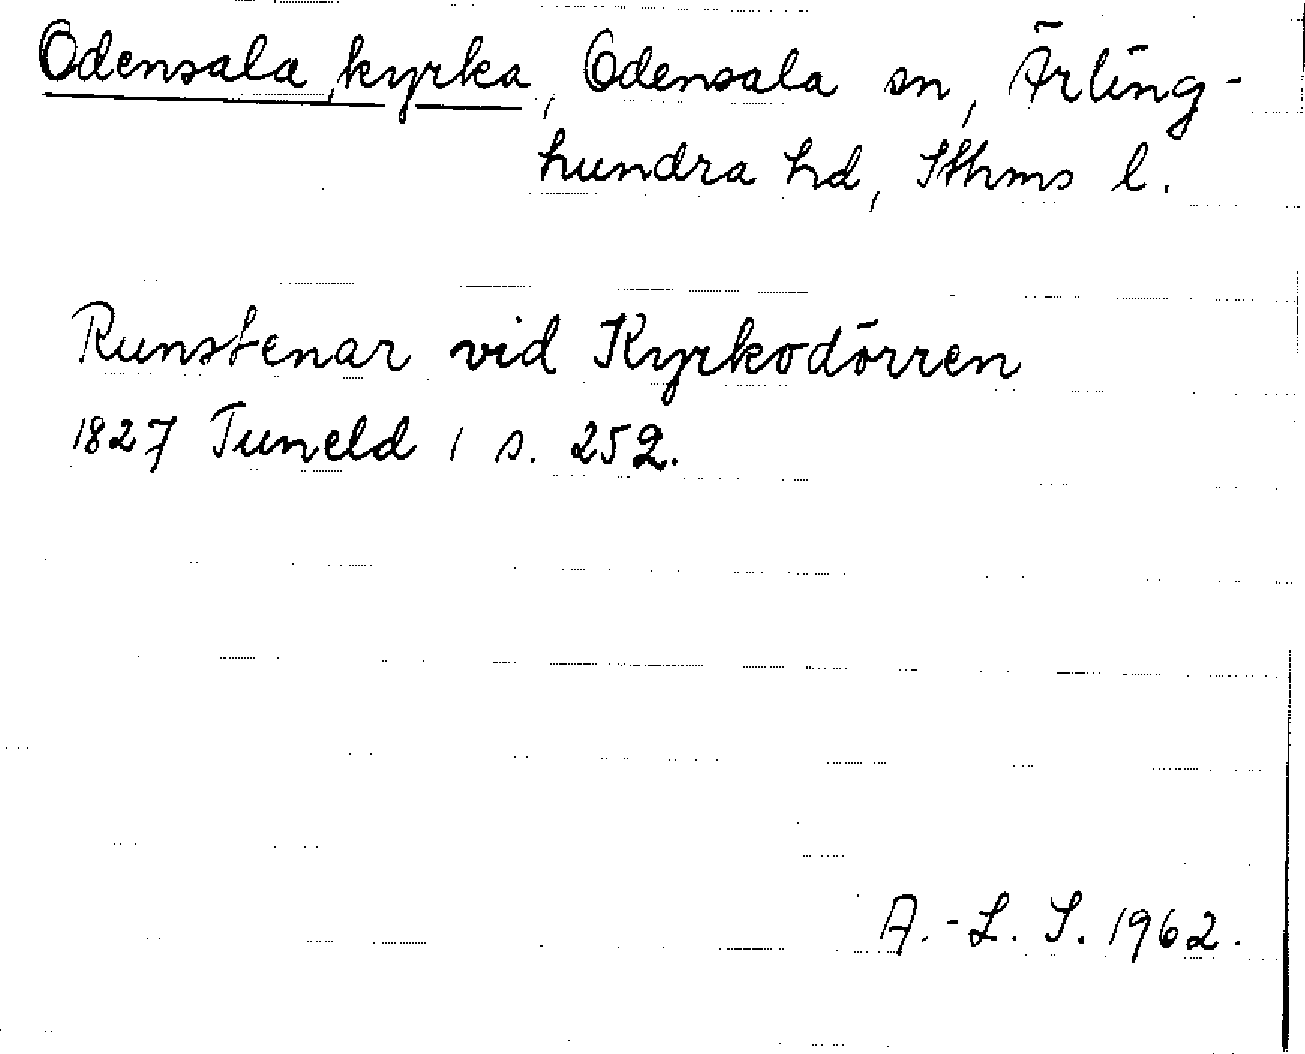 Odensala kyrka, Odensala sn, Ärling-
hundra hd, Sthms l.
Runstenar vid Kyrkodörren
1827 Tuneld 1 s. 252.
A.-L. S. 1962.